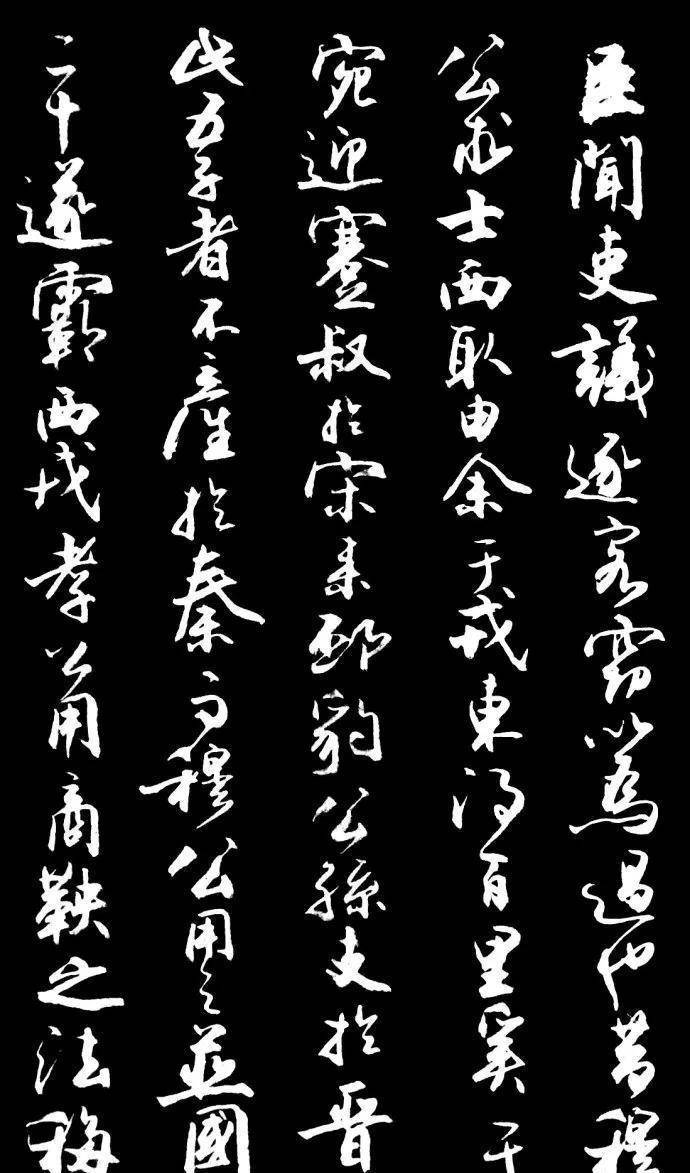 臣聞吏議逐客竊以為過也昔穆
公求士西取由余于戎東得百里奚于
宛迎蹇叔於宋來邳豹公孫支於晉
此五子者不產於秦而穆公用之並國
二十遂霸西戎孝公用商鞅之法移